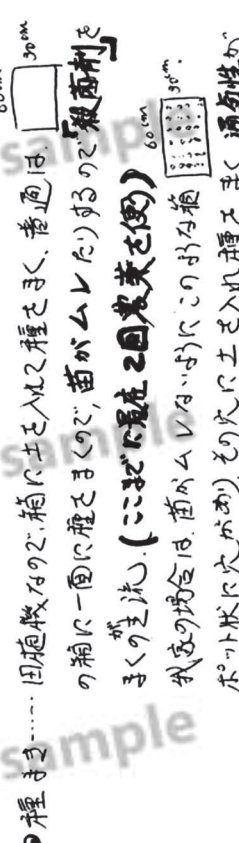 ●種まき……田植機なので、箱に土を入れて種をまく、普通は、 60cm 30cm
の箱に一面に種をまくので、苗がムレたりするので「殺菌剤」を
まくのが主流。(ここまでに最在2回農薬を使う)
我家の場合は、苗がムレないようにこのような箱 60cm 30cm.
ポット状に穴があり、その穴に土を入れ種をまく 通気性が
sample
sample
sample